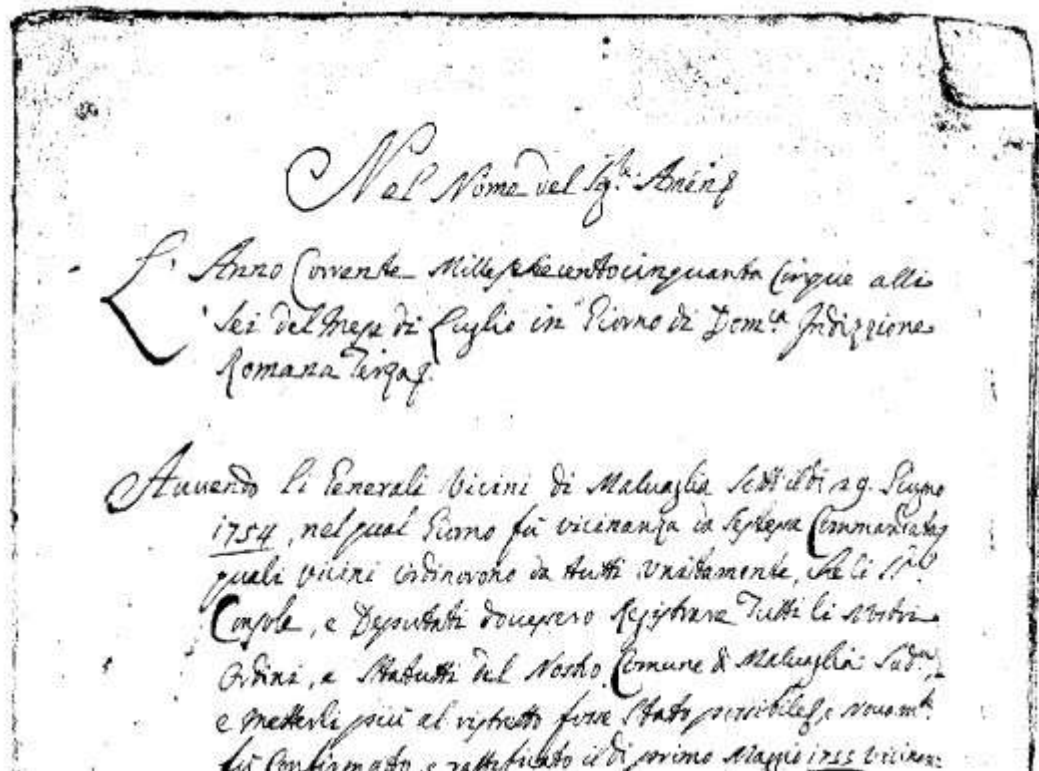 Nel Nome del Sig.re Amen
L'Anno Corrente Millesettecentocinquanta Cinque alli
sei del Mese di Luglio in Giorno di Dom.ca Indizzione
Romana Terza
Avvendo li Generali Vicini di Malvaglia sotto il di 29. Giugno
1754, nel qual Giorno fù vicinanza
quali vicini ordinorono da tutti unitamente, che li SS.ri
Console, e Deputati dovessero Registrare Tutti li Nostri
Ordini, e Statutti del Nostro Comune di Malvaglia Sud.to,
e metterli più al ristretto fosse stato possibile, e novam.te
fù Confirmato, e rattificato il di primo Maggio 1755